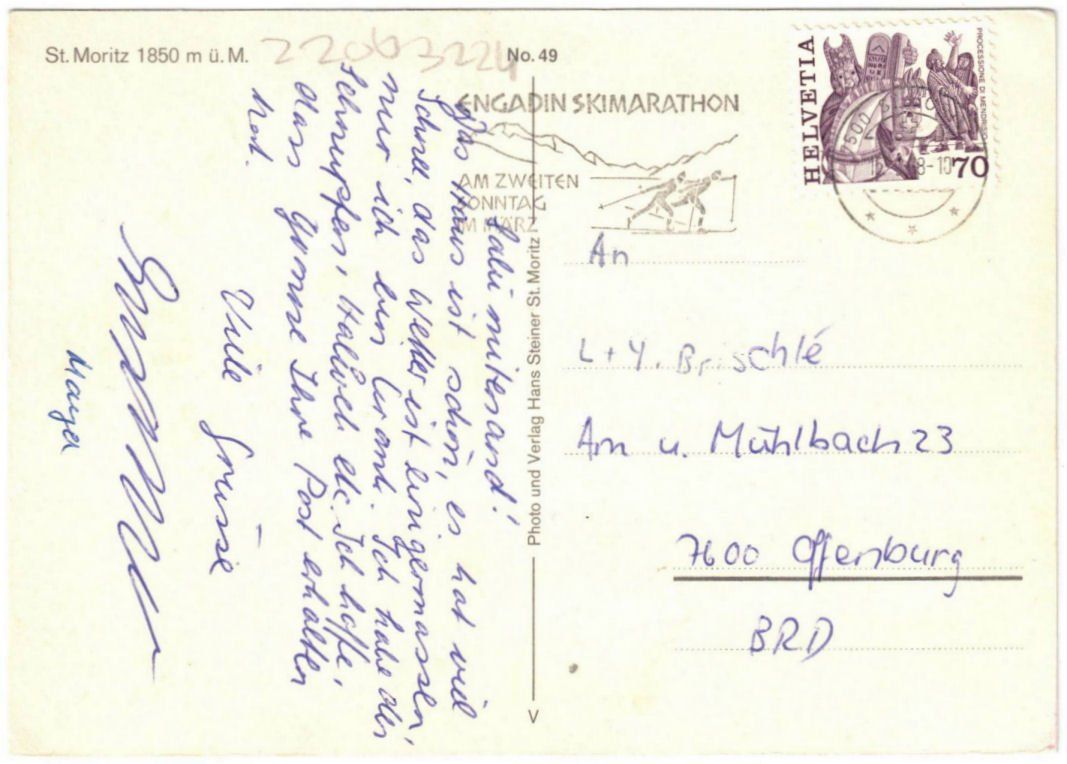 St. Moritz 1850 m ü. M.
No. 49
ENGADIN SKIMARATHON
AM ZWEITEN
SONNTAG
IM MÄRZ
HELVETIA
PROCESSIONE DI MENDRISIO
70
7500
Salü mitenand!
Das Haus ist schön, es hat viel
Schnee, das Wetter ist einigermassen,
nur ich bin krank. Ich habe den
Schnupfen, Halsweh etc. Ich hoffe,
dass Yvonne Ihre Post erhalten
hat.
Viele Grüsse
Photo und Verlag Hans Steiner St. Moritz
V
An
L + Y. Brischlé
Am u. Mühlbach 23
7600 Offenburg
BRD